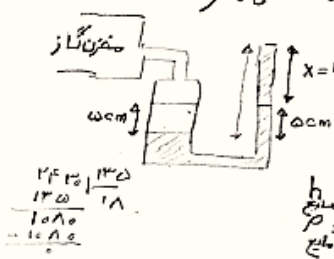 مخزن گاز
x =
۵cm
۵cm
۲۴۳۰ | ۱۳۵
۱۳۵ ۱۸
۱۰۸۰
- ۱۰۸۰
۰
h
مایع
ρ
مایع